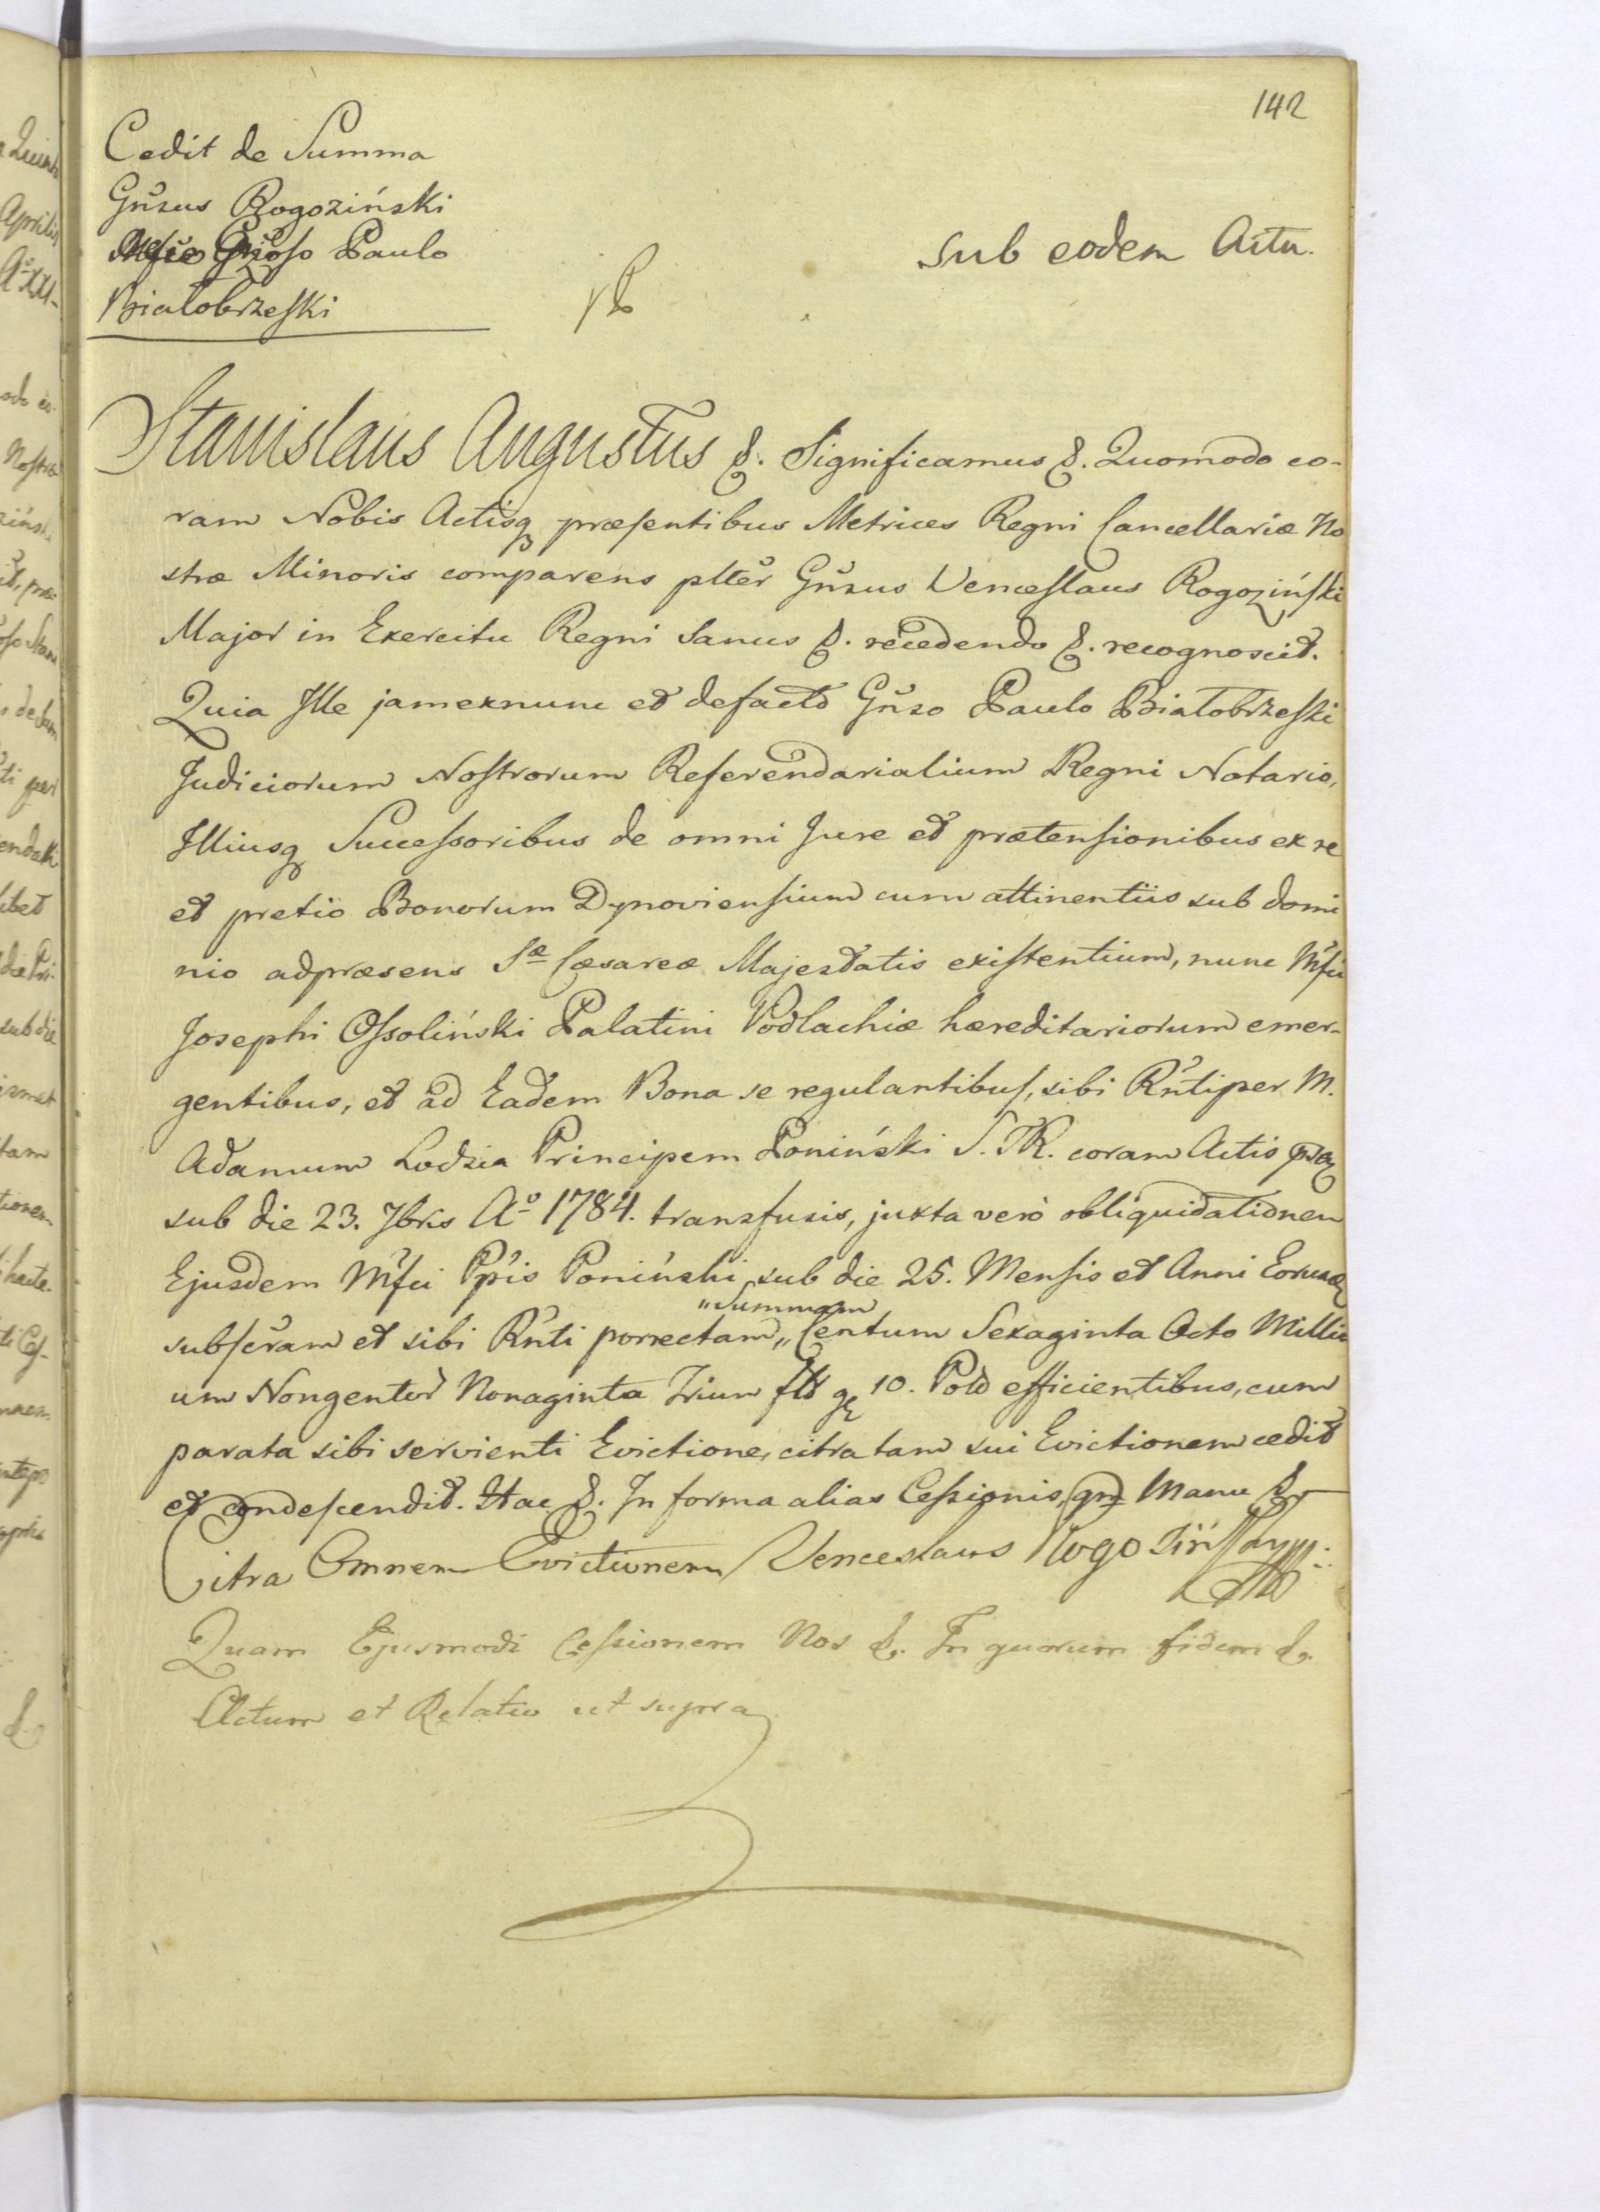 142
Cedit de Summa
Gnsus Rogoziński
Gnoso Paulo
Białobrzeski
Sub eodem Actu.
Stanislaus Augustus &. Significamus &. Quomodo co-
ram Nobis Actisq præsentibus Metrices Regni Cancellariæ No
stræ Minoris comparens plter Gnsus Venceslaus Rogoziński
Major in Exercitu Regni Sanus &. recedendo &. recognoscit.
Quia Ille jamexnunc et defacto Gnso Paulo Białobrzeski
Judiciorum Nostrorum Referendarialium Regni Notario,
Illiusq Successoribus de omni Jure et prætensionibus ex re
et pretio Bonorum Dynoviensium cum attinentiis sub domi
nio adpræsens Sæ Cæsareæ Majestatis existentium, nunc Mfci
Josephi Ossoliński Palatini Podlachiæ hæreditariorum emer-
gentibus, et ad Eadem Bona se regulantibus, sibi Rnti per M.
Adamum Lodzia Principem Poniński S.TR. coram Actis
sub die 23. 7bris Aº 1784. transfusis, juxta verò obliquidationem
Ejusdem Mfci Ppis Poniński sub die 25. Mensis et Anni Eorunde
subscram et sibi Rnti porrectam „ Centum Sexaginta Octo Milli
„Summam
um Nongentor Nonaginta Trium flr gr 10. Pold efficientibus, cum
parata sibi servienti Evictione, citra tam sui Evictionem cedit
et condescendit. Hac &. In forma alias Cessionis, Manu &.
Citra Omnem Evictionem Venceslaus Rogoziński
Quam Ejusmodi Cessionem Nos &. In quorum fidem &.
Actum et Relatio ut supra